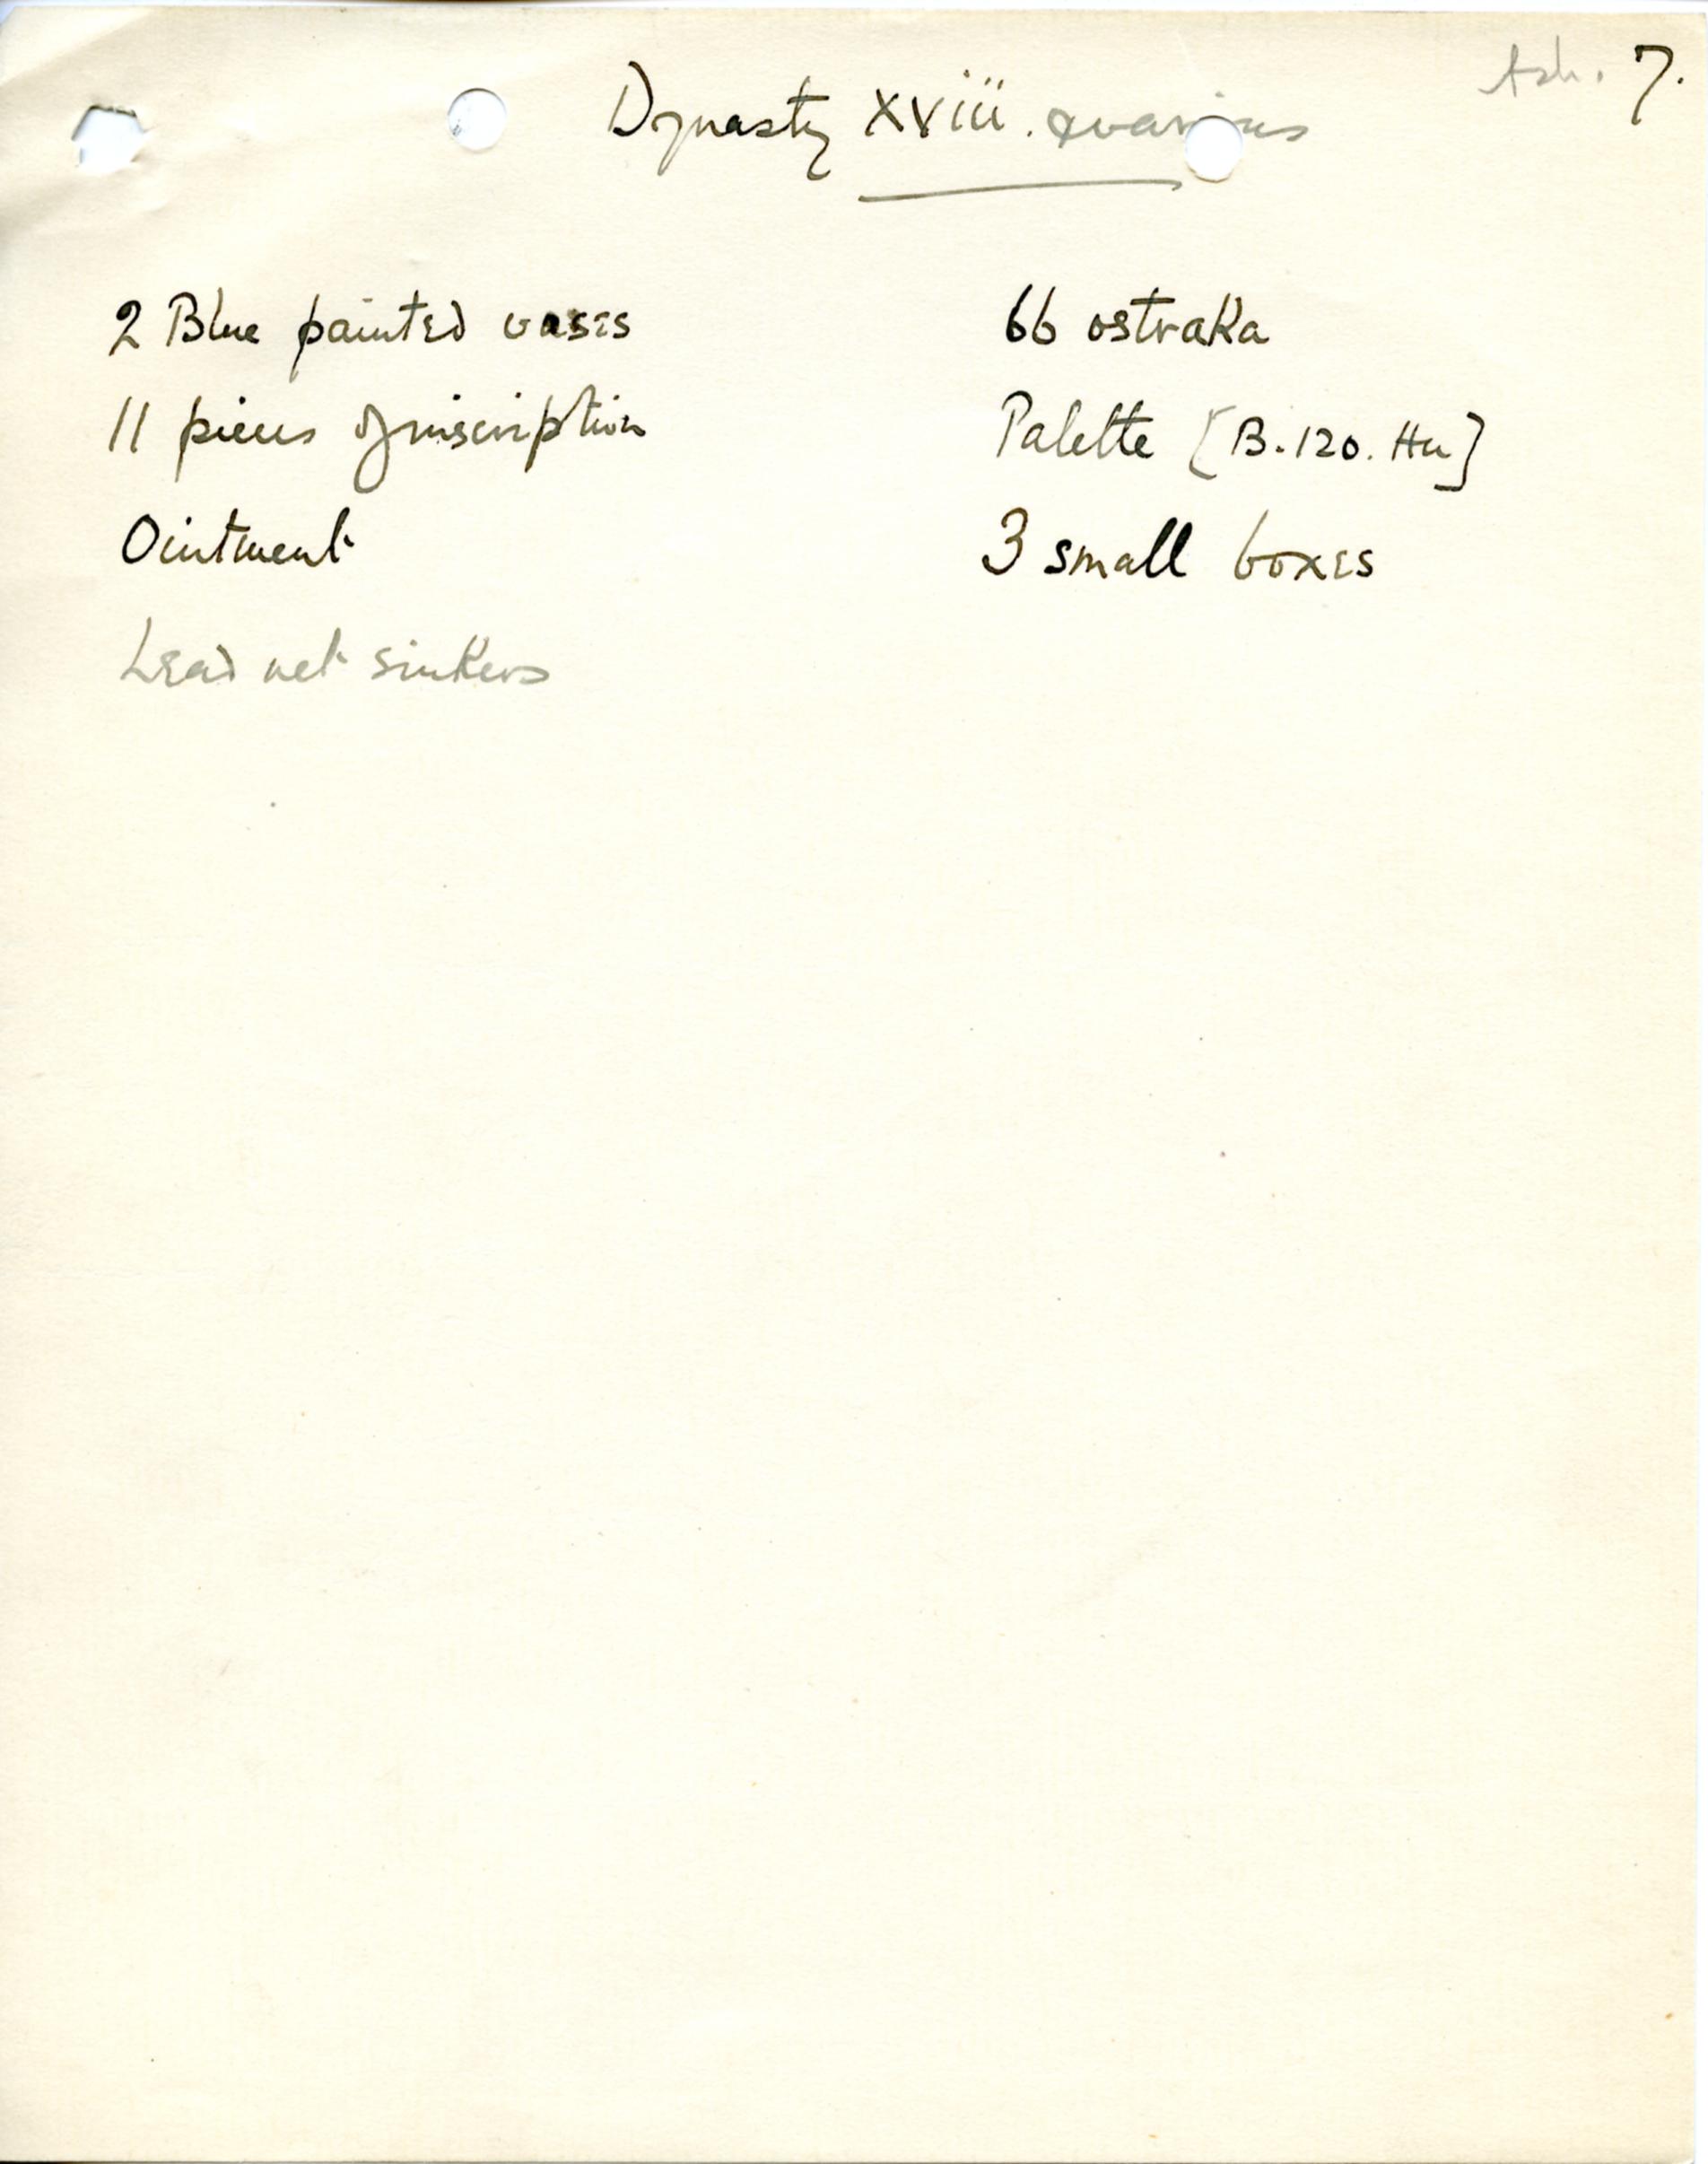 Ash. 7.
Dynasty XViii. & various
2 Blue painted vases
11 pieces of inscription
Ointment
Lead net sinkers
66 ostraka
Palette [B.120. Hu]
3 small boxes